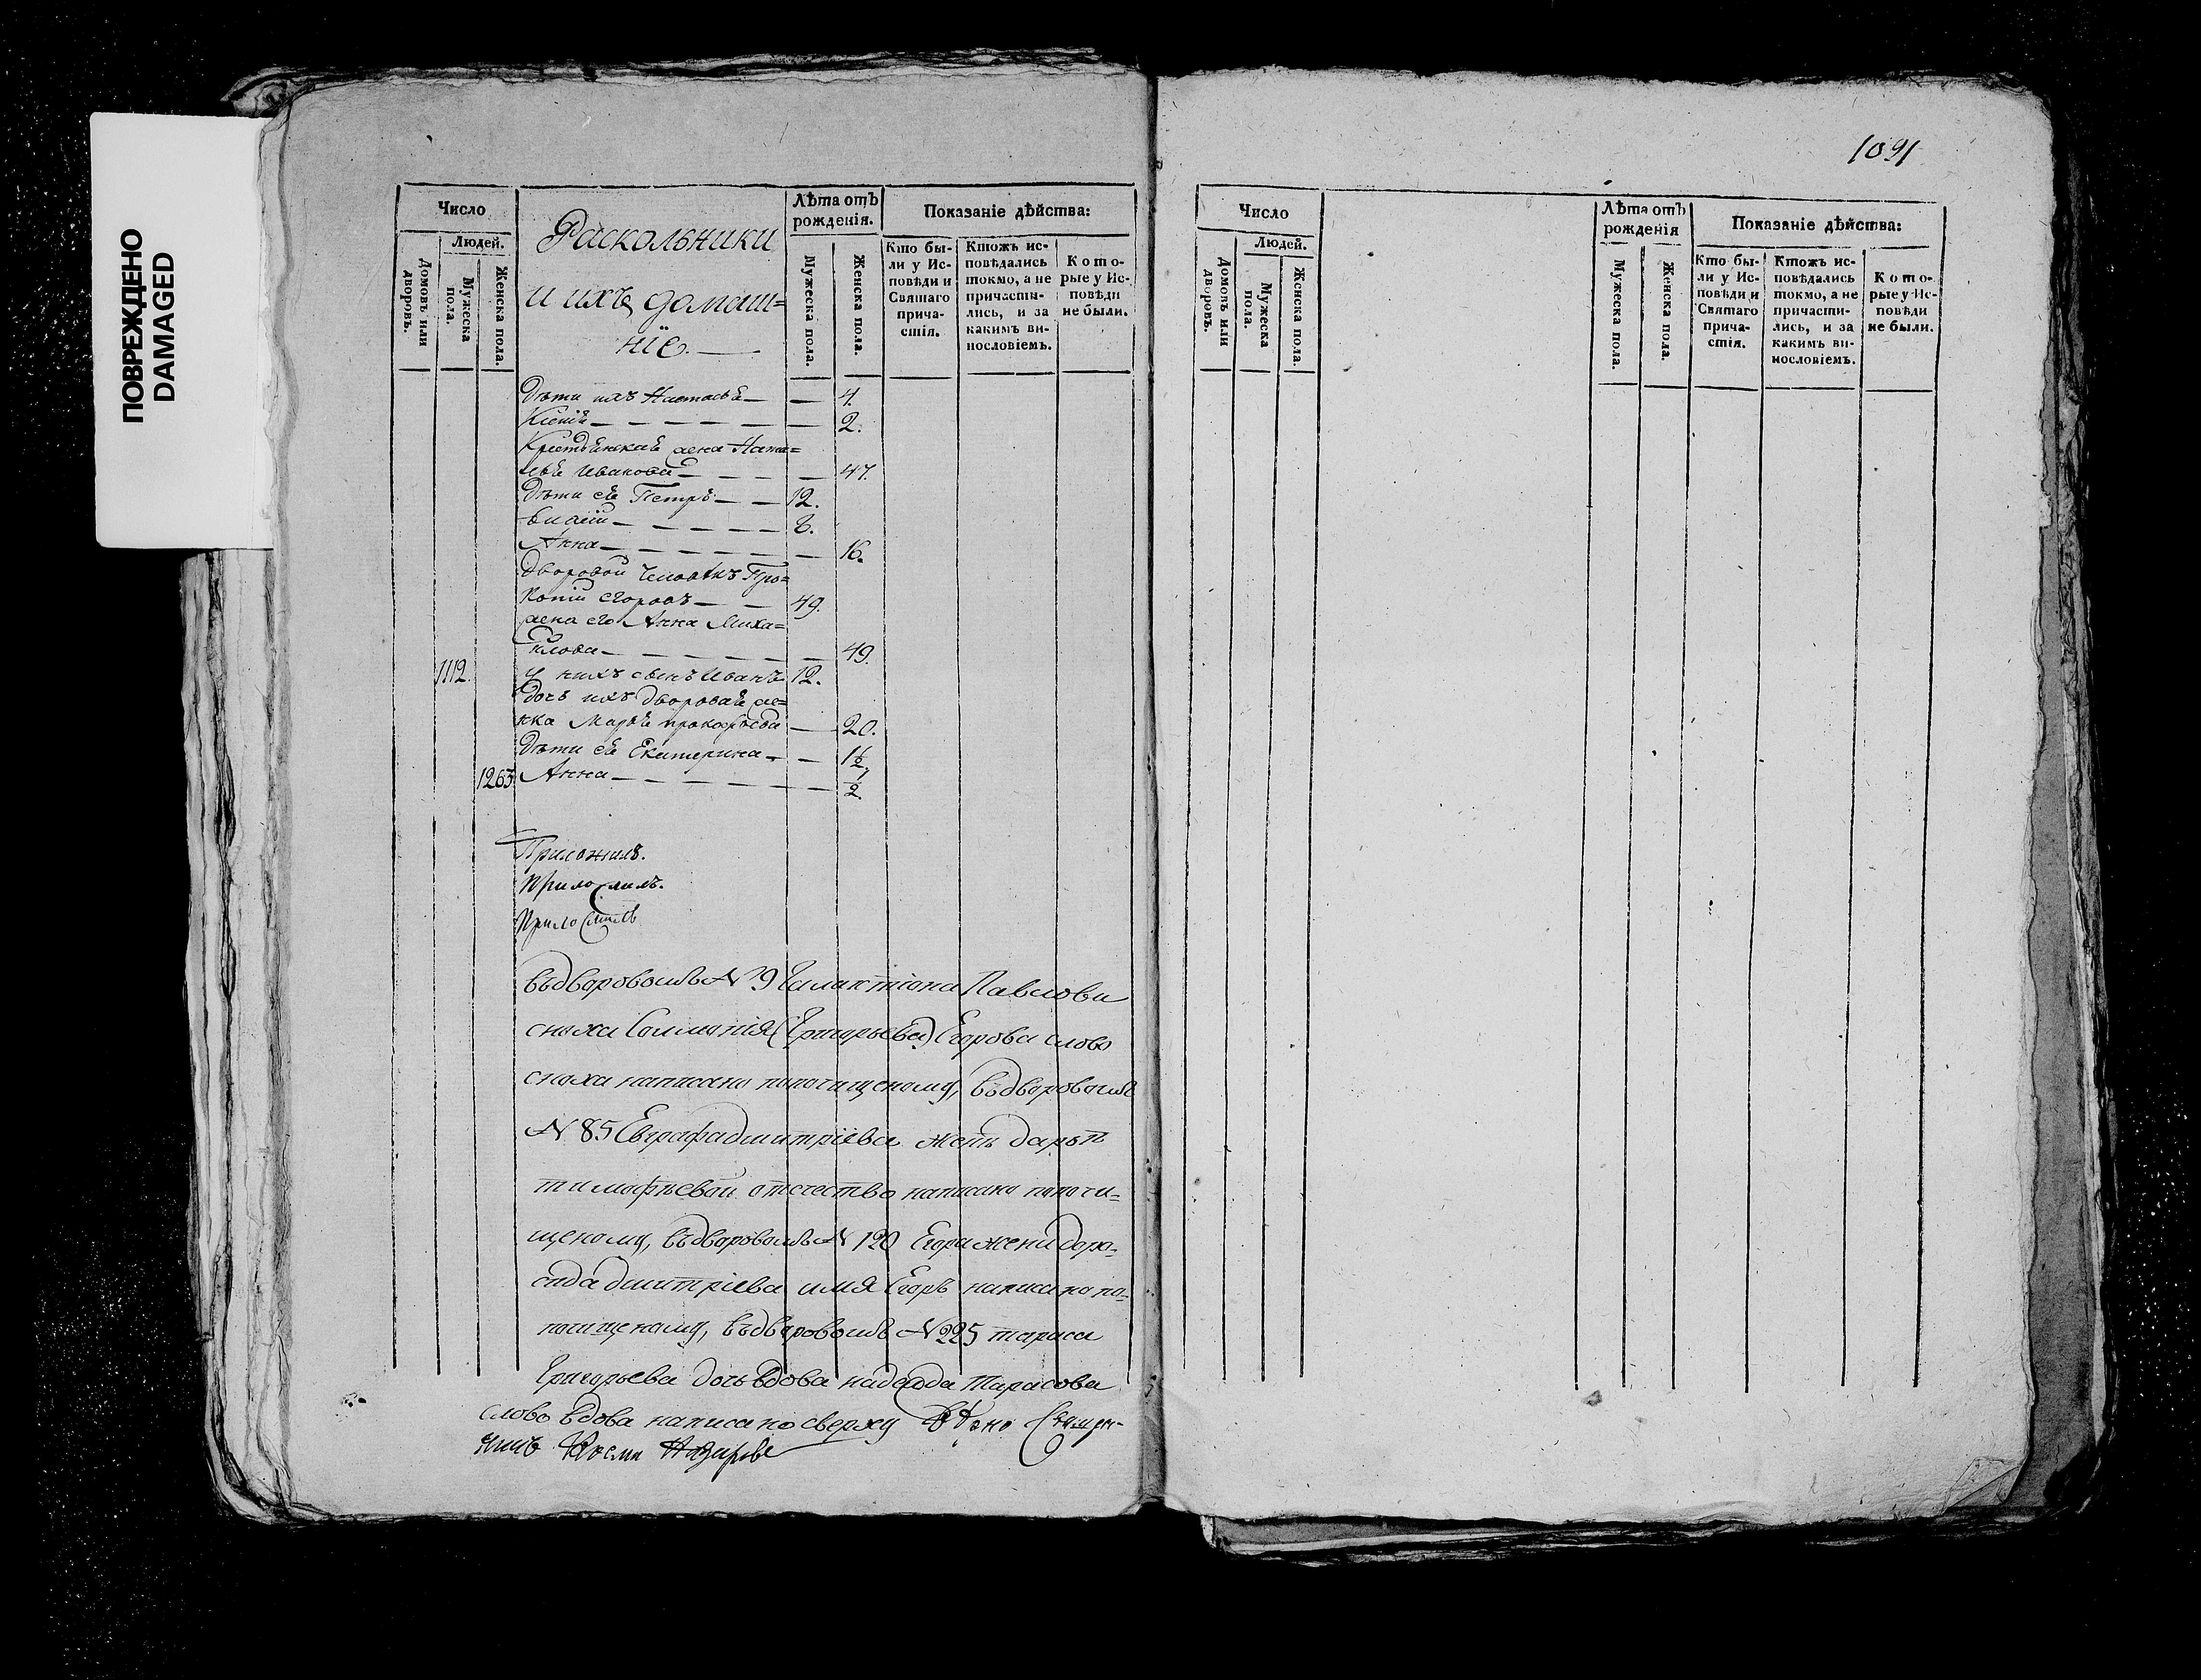 ПОВРЕЖДЕНО
DAMAGED
Число
Людей.
Домовъ или дворовъ.
Мужеска пола.
Женска пола.
Раскольники
и ихъ домаш=
ніе.
Лѣта отъ рожденія.
Мужеска пола.
Женска пола.
Показаніе дѣйства:
Кто бы-
ли у Ис-
повѣди и
Святаго
прича-
стія.
Ктожъ ис-
повѣдались
токмо, а не
причасти-
лись, и за
какимъ ви-
нословіемъ.
Кото-
рые у Ис-
повѣди
не были.
Дѣти ихъ Настасья — — 4.
— 2.
Крестьянская жена Ната=
лья Иванова — 47.
Дѣти ея Петръ — 12.
— 8.
Анна — 16.
Дворовой человѣкъ Про=
копій Егоровъ — 49.
жена его Анна Миха=
йлова — 49.
1112. у нихъ сынъ Иванъ 12.
дочь ихъ дворовая же=
нка Марья Прокофьева — 20.
Дѣти ея Екатерина — 1½
1263 Анна — ½
Приложилъ.
Приложилъ.
Приложилъ
Въ дворовомъ № 9 Галактіона Павлова
сноха Соломонія (Григорьева) Егорова слово
сноха написано по почищеному, Въ дворовомъ
№ 85 Евграфа Дмитріева женѣ Дарьѣ
Тимофѣевой отечество написано по почи=
щеному, Въ дворовомъ № 120 Егора жени Доро=
Дмитріева имя Егоръ написано по=
почищеному, Въ дворовомъ № 225 Тараса
Григорьева дочь вдова надежда Тарасова
слово вдова написано сверху Священ-
никъ Косма
1091
Число
Людей.
Домовъ или дворовъ.
Мужеска пола.
Женска пола.
Лѣта отъ рожденія
Мужеска пола.
Женска пола.
Показаніе дѣйства:
Кто бы-
ли у Ис-
повѣди и
Святаго
прича-
стія.
Ктожъ ис-
повѣдались
токмо, а не
причасти-
лись, и за
какимъ ви-
нословіемъ.
Кото-
рые у Ис-
повѣди
не были.